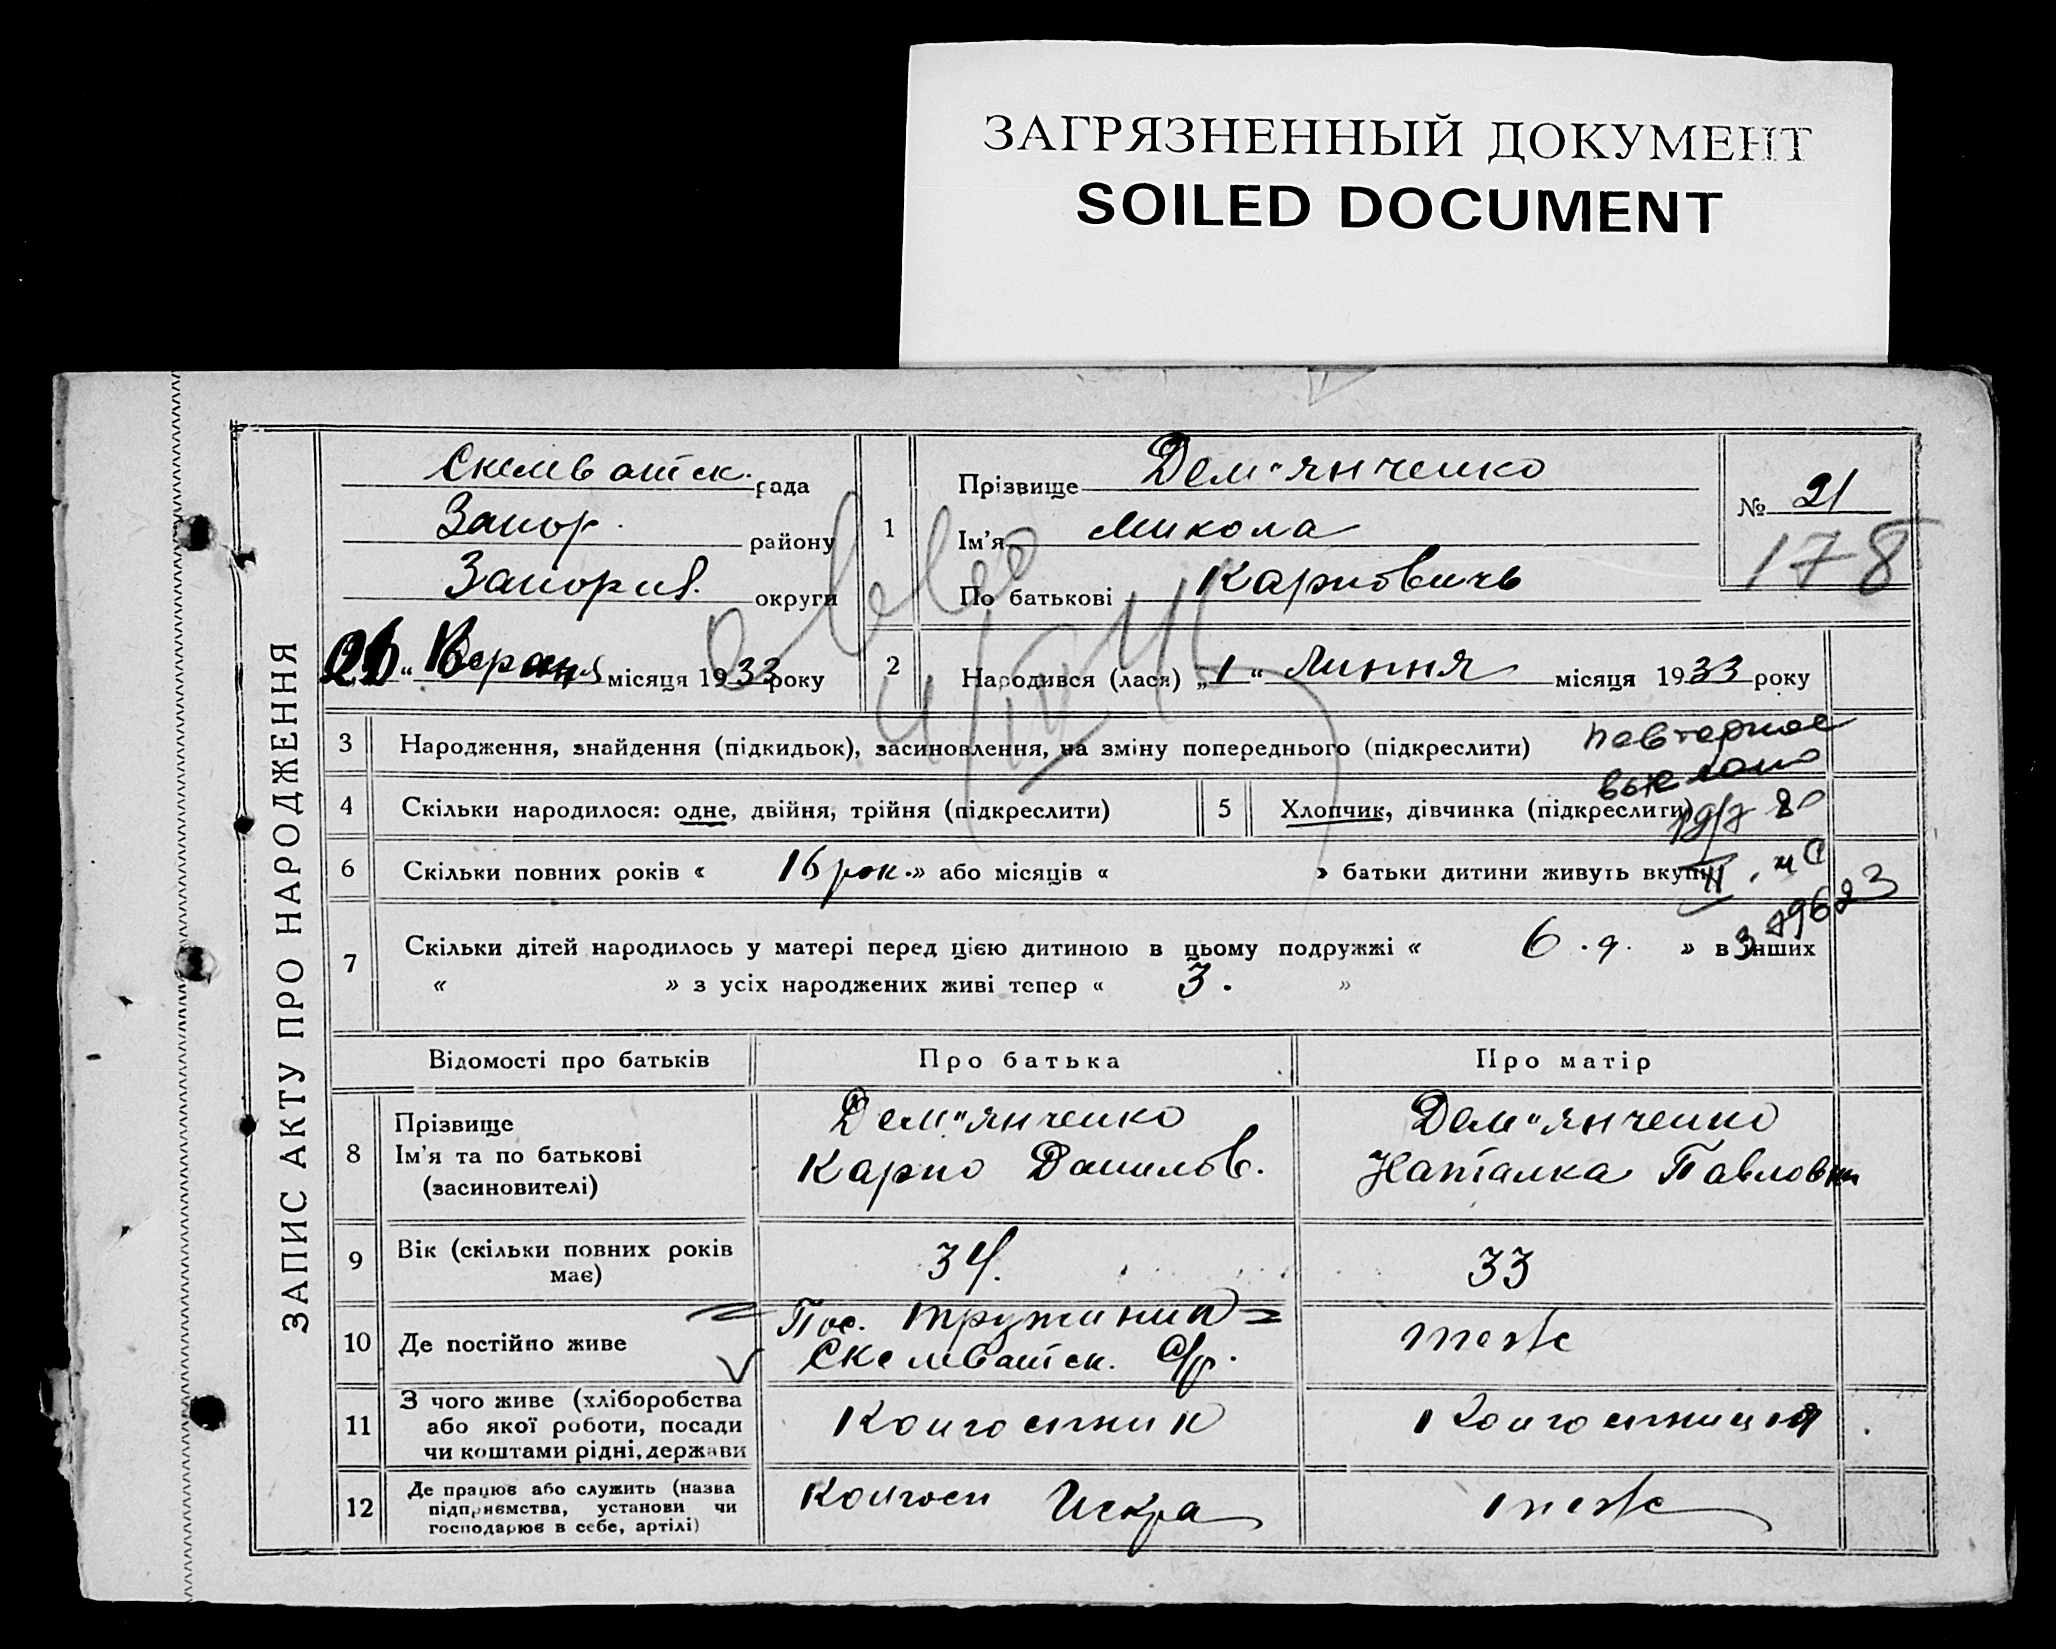 ЗАГРЯЗНЕННЫЙ ДОКУМЕНТ
SOILED DOCUMENT
ЗАПИС АКТУ ПРО НАРОДЖЕННЯ
Скельватск. рада
Запор. району
Запориз. округи
місяця 1933 року
1
Прізвище Дем"янченко
Ім'я Микола
По батькові Карповичь
№ 21
178
2
Народився (лася) „1“ Липня місяця 1933 року
3 Народження, знайдення (підкидьок), засиновлення, на зміну попереднього (підкреслити)
повторное
выслано
4 Скільки народилося: одне, двійня, трійня (підкреслити)
5 Хлопчик, дівчинка (підкреслити)
6 Скільки повних років « 16 рок.» або місяців « » батьки дитини живуть вкупі
7 Скільки дітей народилось у матері перед цією дитиною в цьому подружжі « 6. д. » в інших
« » з усіх народжених живі тепер « 3. »
Відомості про батьків Про батька Про матір
8 Прізвище
Ім'я та по батькові
(засиновителі)
Дем"янченко
Карпо Данилов.
Дем"янченко
Наталка Павловн
9 Вік (скільки повних років
має)
34.
33
10 Де постійно живе
Пос.
Скельватск. С/р.
11 З чого живе (хліборобства
або якої роботи, посади
чи коштами рідні, держави
Колгоспник
Колгоспниця
12 Де працює або служить (назва
підприємства, установи чи
господарює в себе, артілі)
Колгосп Искра